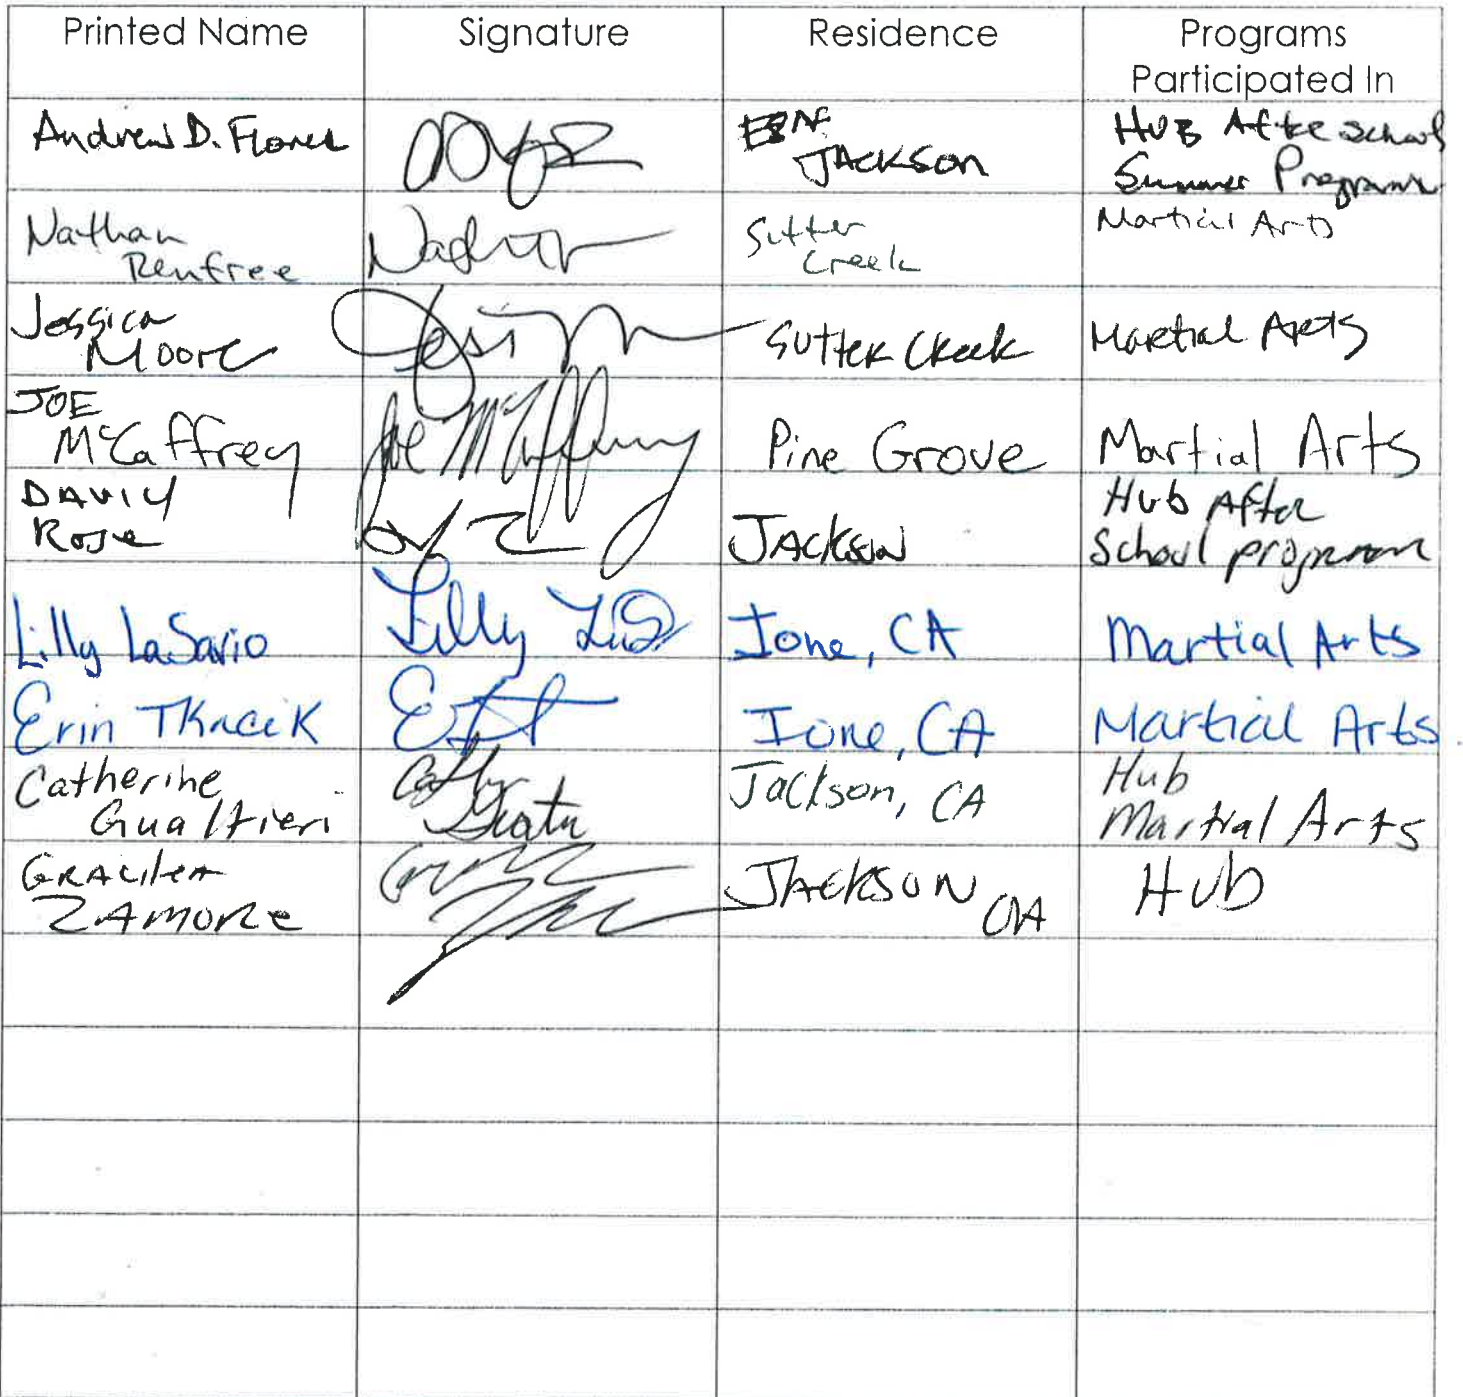 Printed Name Signature Residence Programs
Participated In
Andrew D. Flores
JACKSON
HUB Afte school
Summer Programs
Nathan
Renfree
Sutter
Creek
Martial Arts
Jessica
Moore
Sutter Creek
Martial Arts
JOE
McCaffrey
Joe McCaffrey
Pine Grove
Martial Arts
DAVID
Rose
JACKSON
Hub After
School program
Lilly LaSario
Lilly
Ione, CA
Martial Arts
Erin TKacik
Ione, CA
Martial Arts
Catherine
Gualtieri
Jackson, CA
Hub
Martial Arts
GRACIlEA
ZAMORE
JACKSON CA
Hub